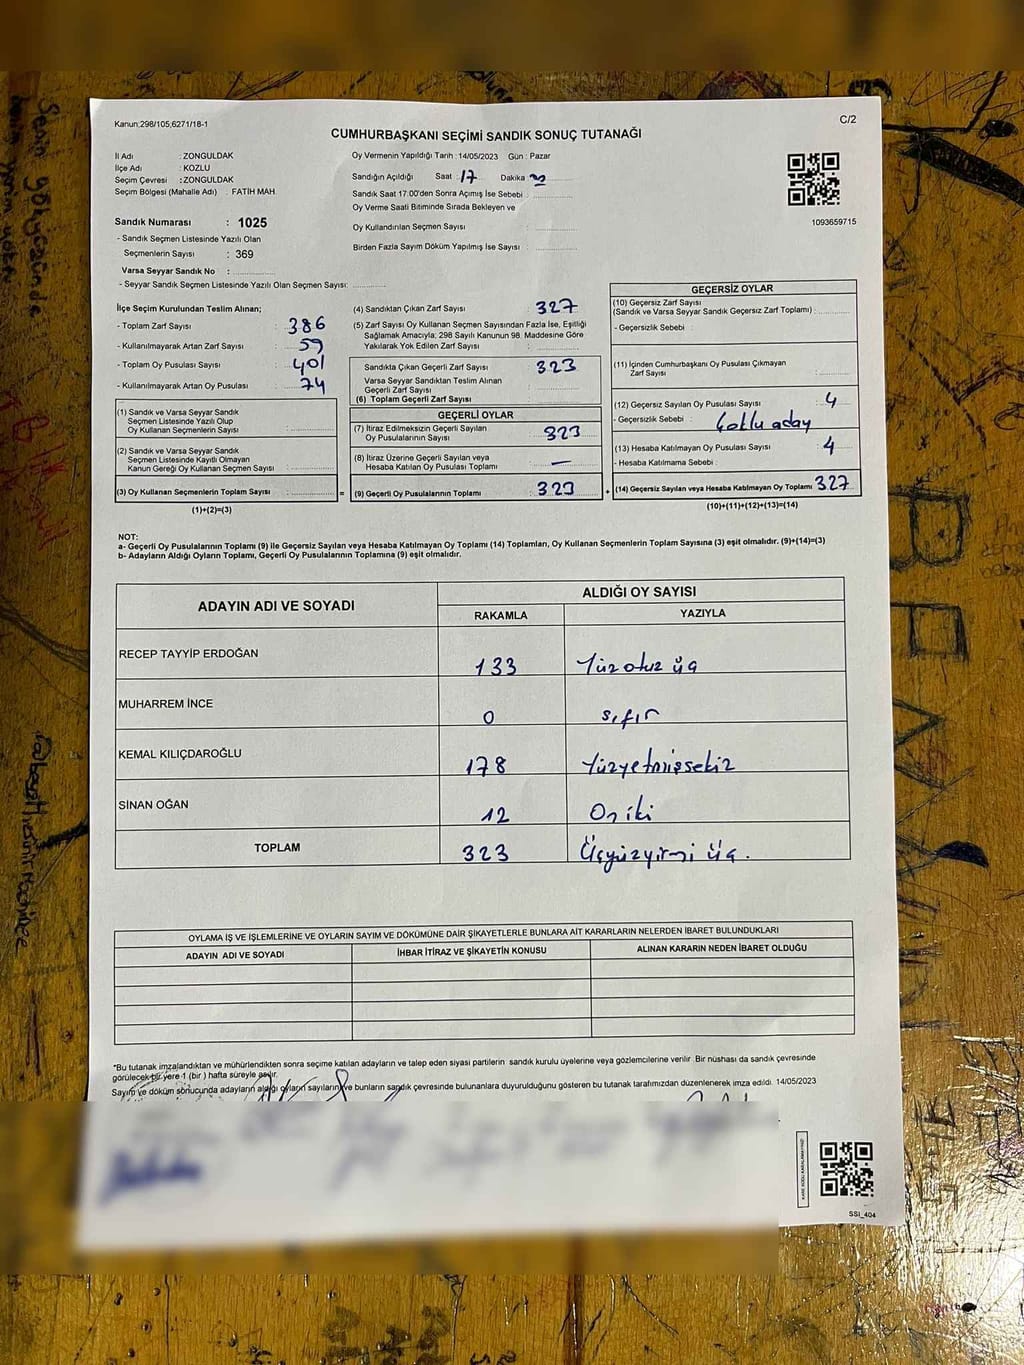 Kanun;298/105;6271/18-1
C/2
CUMHURBAŞKANI SEÇİMİ SANDIK SONUÇ TUTANAĞI
İl Adı : ZONGULDAK
İlçe Adı : KOZLU
Seçim Çevresi : ZONGULDAK
Seçim Bölgesi (Mahalle Adı) : FATİH MAH.
Sandık Numarası : 1025
- Sandık Seçmen Listesinde Yazılı Olan
Seçmenlerin Sayısı : 369
Varsa Seyyar Sandık No :
- Seyyar Sandık Seçmen Listesinde Yazılı Olan Seçmen Sayısı:
Oy Vermenin Yapıldığı Tarih : 14/05/2023 Gün : Pazar
Sandığın Açıldığı Saat : 17 Dakika :
Sandık Saat 17:00'den Sonra Açımış İse Sebebi :
Oy Verme Saati Bitiminde Sırada Bekleyen ve
Oy Kullandırılan Seçmen Sayısı :
Birden Fazla Sayım Döküm Yapılmış İse Sayısı :
1093659715
İlçe Seçim Kurulundan Teslim Alınan;
- Toplam Zarf Sayısı : 386
- Kullanılmayarak Artan Zarf Sayısı : 59
- Toplam Oy Pusulası Sayısı : 401
- Kullanılmayarak Artan Oy Pusulası : 74
(1) Sandık ve Varsa Seyyar Sandık
Seçmen Listesinde Yazılı Olup
Oy Kullanan Seçmenlerin Sayısı :
(2) Sandık ve Varsa Seyyar Sandık
Seçmen Listesinde Kayıtlı Olmayan
Kanun Gereği Oy Kullanan Seçmen Sayısı :
(3) Oy Kullanan Seçmenlerin Toplam Sayısı :
(1)+(2)=(3)
(4) Sandıktan Çıkan Zarf Sayısı : 327
(5) Zarf Sayısı Oy Kullanan Seçmen Sayısından Fazla İse, Eşitliği
Sağlamak Amacıyla; 298 Sayılı Kanunun 98. Maddesine Göre
Yakılarak Yok Edilen Zarf Sayısı :
Sandıkta Çıkan Geçerli Zarf Sayısı : 323
Varsa Seyyar Sandıktan Teslim Alınan
Geçerli Zarf Sayısı :
(6) Toplam Geçerli Zarf Sayısı :
GEÇERLİ OYLAR
(7) İtiraz Edilmeksizin Geçerli Sayılan
Oy Pusulalarının Sayısı : 323
(8) İtiraz Üzerine Geçerli Sayılan veya
Hesaba Katılan Oy Pusulası Toplamı : —
= (9) Geçerli Oy Pusulalarının Toplamı : 323 +
GEÇERSİZ OYLAR
(10) Geçersiz Zarf Sayısı
(Sandık ve Varsa Seyyar Sandık Geçersiz Zarf Toplamı) :
- Geçersizlik Sebebi :
(11) İçinden Cumhurbaşkanı Oy Pusulası Çıkmayan
Zarf Sayısı :
(12) Geçersiz Sayılan Oy Pusulası Sayısı : 4
- Geçersizlik Sebebi : Çoklu aday
(13) Hesaba Katılmayan Oy Pusulası Sayısı : 4
- Hesaba Katılmama Sebebi :
(14) Geçersiz Sayılan veya Hesaba Katılmayan Oy Toplamı : 327
(10)+(11)+(12)+(13)=(14)
NOT:
a- Geçerli Oy Pusulalarının Toplamı (9) ile Geçersiz Sayılan veya Hesaba Katılmayan Oy Toplamı (14) Toplamları, Oy Kullanan Seçmenlerin Toplam Sayısına (3) eşit olmalıdır. (9)+(14)=(3)
b- Adayların Aldığı Oyların Toplamı, Geçerli Oy Pusulalarının Toplamına (9) eşit olmalıdır.
ADAYIN ADI VE SOYADI ALDIĞI OY SAYISI
RAKAMLA YAZIYLA
RECEP TAYYİP ERDOĞAN 133 Yüz otuz üç
MUHARREM İNCE 0 sıfır
KEMAL KILIÇDAROĞLU 178 Yüzyetmişsekiz
SİNAN OĞAN 12 On iki
TOPLAM 323 Üçyüzyirmi üç.
OYLAMA İŞ VE İŞLEMLERİNE VE OYLARIN SAYIM VE DÖKÜMÜNE DAİR ŞİKAYETLERLE BUNLARA AİT KARARLARIN NELERDEN İBARET BULUNDUKLARI
ADAYIN ADI VE SOYADI İHBAR İTİRAZ VE ŞİKAYETİN KONUSU ALINAN KARARIN NEDEN İBARET OLDUĞU
*Bu tutanak imzalandıktan ve mühürlendikten sonra seçime katılan adayların ve talep eden siyasi partilerin sandık kurulu üyelerine veya gözlemcilerine verilir. Bir nüshası da sandık çevresinde
görülecek bir yere 1 (bir) hafta süreyle asılır.
Sayım ve döküm sonucunda adayların aldığı oyların sayılarını ve bunların sandık çevresinde bulunanlara duyurulduğunu gösteren bu tutanak tarafımızdan düzenlenerek imza edildi. 14/05/2023
KARE KODU KARALAMAYINIZ!
SSI_404